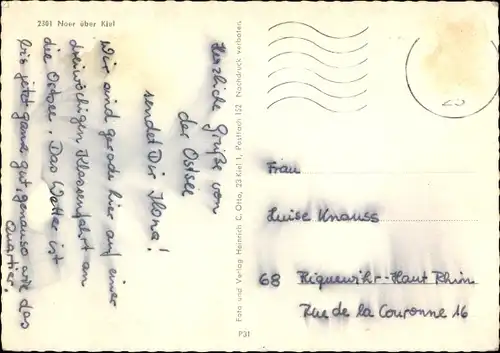 2301 Noer über Kiel
Herzliche Grüße von
der Ostsee
sendet Dir Ilona!
Wir sind gerade hier auf einer
dreiwöchigen Klassenfahrt an
die Ostsee. Das Wetter ist
bis jetzt ganz gut, genauso wie das
Quartier.
Foto und Verlag Heinrich C. Otto, 23 Kiel 1, Postfach 152 Nachdruck verboten
P31
Frau
Luise Knauss
68 Riquewihr-Haut Rhin
Rue de la Couronne 16